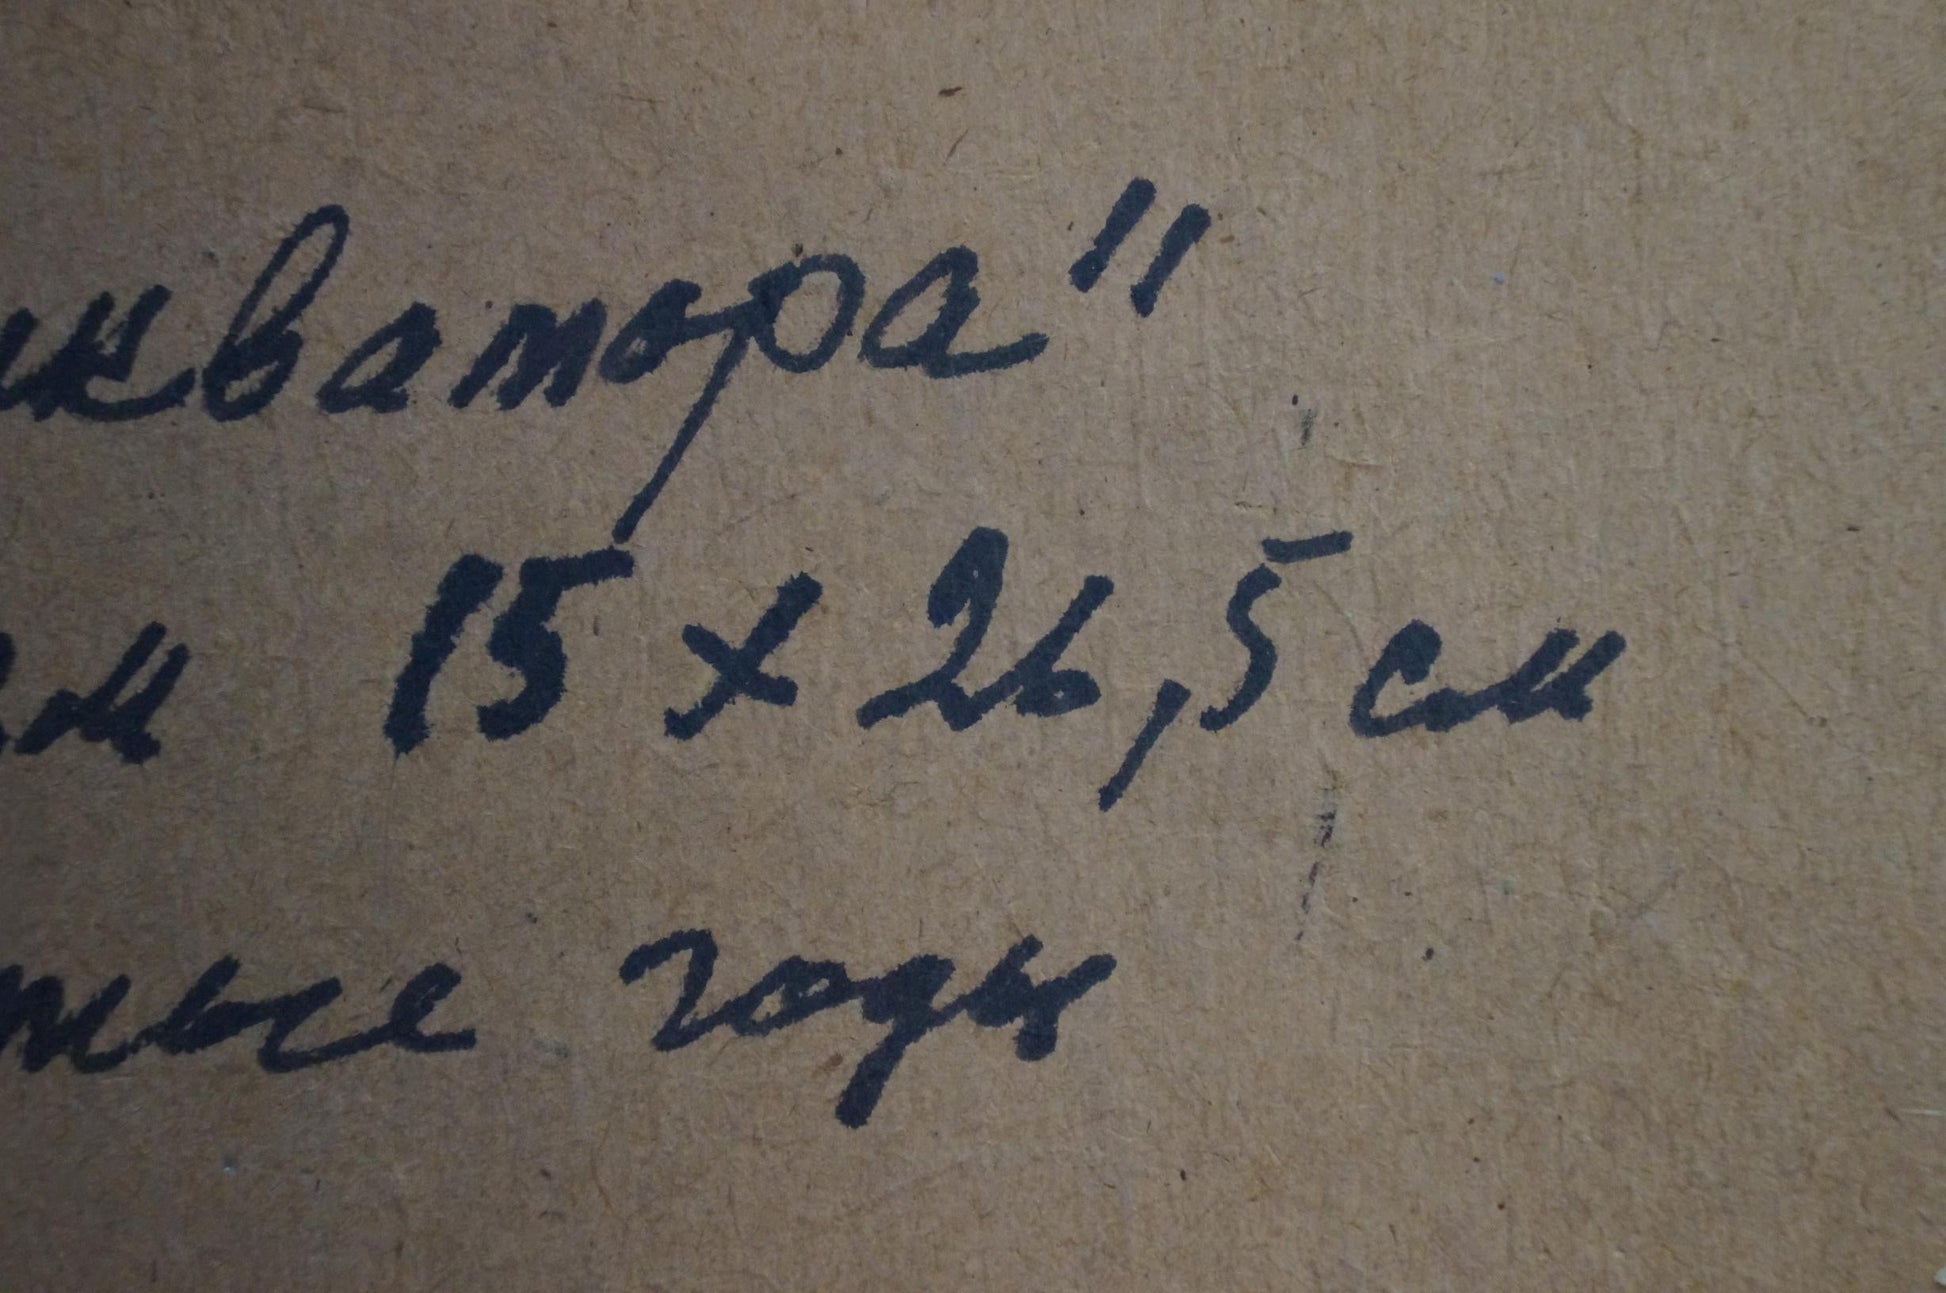 кватора"
15 x 26,5 см
тые годы